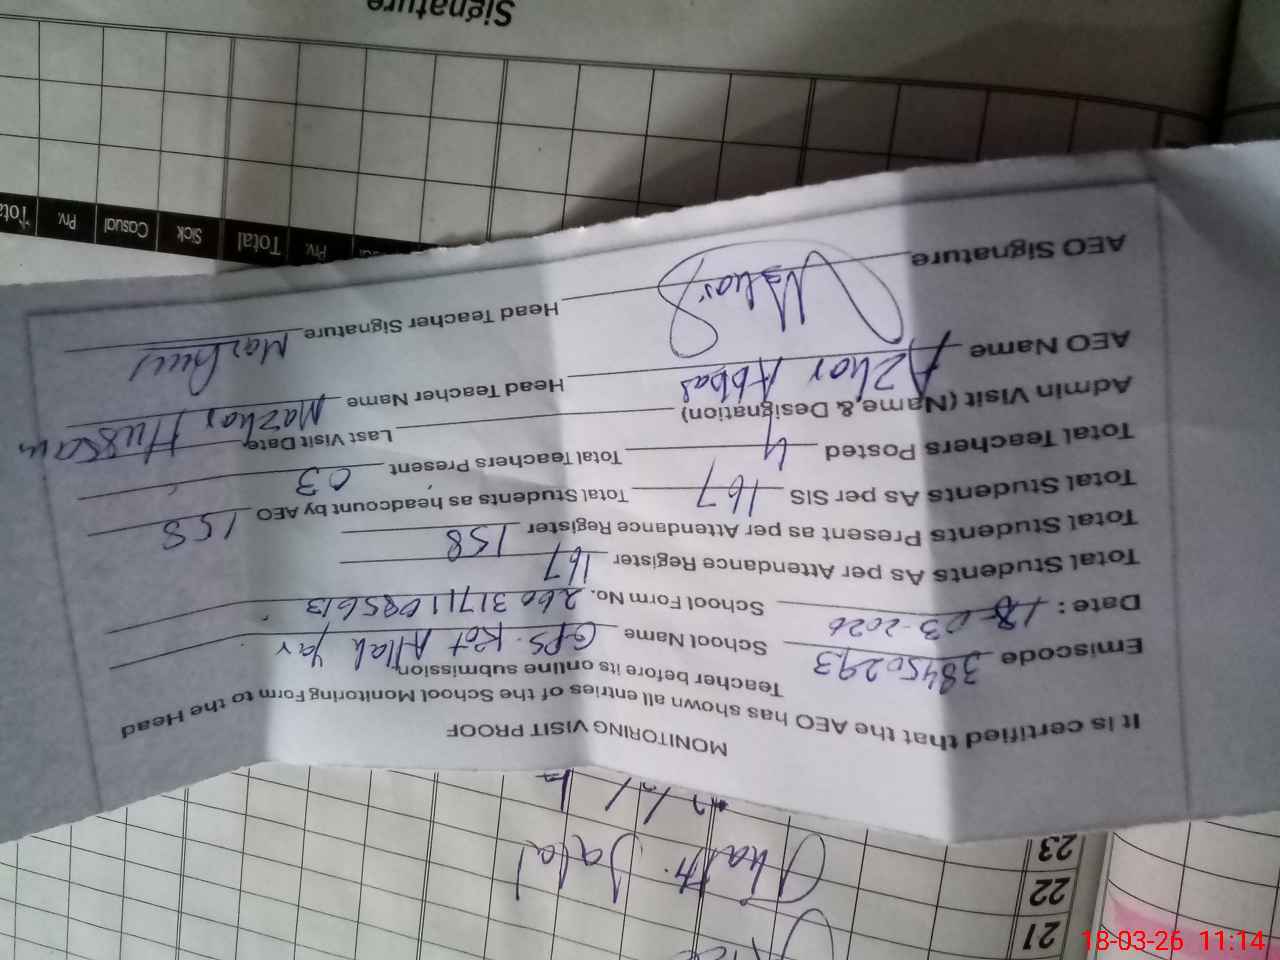 MONITORING VISIT PROOF
It is certified that the AEO has shown all entries of the School Monitoring Form to the Head
Teacher before its online submission
Emiscode 38450293 School Name GPS. Kot Allah Yar
Date : 18-03-2026 School Form No. 26031711085613
Total Students As per Attendance Register 167
Total Students Present as per Attendance Register 158
Total Students As per SIS 167 Total Students as headcount by AEO 158
Total Teachers Posted 4 Total Teachers Present 03
Admin Visit (Name & Designation) Last Visit Date
AEO Name Azhar Abbas Head Teacher Name Mazhar Hussain
AEO Signature Head Teacher Signature
Total Prv. Casual Sick Total Prv.
Signature
21
22
23
18-03-26 11:14